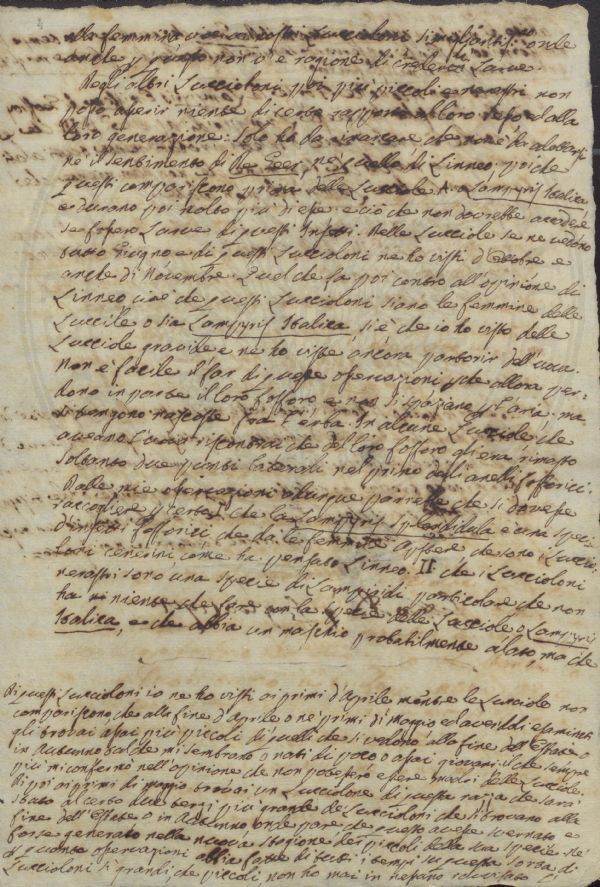 alla femmina vicina nostri Lucciloni onde
anche p questo non v'è ragione di crederli Larve.
Negli altri Luccioloni poi più piccoli e nerastri non
posso asserir niente di certo rapporto al loro sesso ed alla
loro generazione. Solo ho da rimarcare che non è da adottarsi
né il sentimento di De Geer, né quello di Linneo, poiche
questi compariscono prima delle Lucciole o Lampyris Italica
e durano poi molto più di esse e ciò che non dovrebbe accadere
se fossero Larve di questi Insetti. Delle Lucciole se ne vedono
tutto Giugno e di questi Luccioloni ne ho visti d'Ottobre e
anche di Novembre. Quel che fa poi contro all'opinione di
Linneo cioè che questi Luccioloni siano le femmine delle
Lucciole o sia Lampyris Italica, si è che io ho visto delle
Lucciole gravide e ne ho viste ancora partorir dell'uova.
Non è facile il far di queste osservazioni pche allora per-
dono in parte il loro fosforo e non si spaziano p l'aria, ma
si tengono nascoste fra l'erba. In alcune Lucciole, che
aveano l'uova riscontrai che del loro fosforo gli era rimasto
soltanto due punti laterali nel primo degli anelli fosforici.
Dalle mie osservazioni dunque parrebbe che si dovesse
raccogliere p certo I che la Lampyris Splendidula è una specie
d'insetti fosforici che da le femmine Aptere che sono i Luccio-
loni cenerini come ha pensato Linneo. II che i Luccioloni
nerastri sono una specie di Lampiridi particolare che non
ha niente che fare con la specie delle Lucciole o Lampyris
Italica, e che abbia un maschio probabilmente alato, ma che
Di questi Luccioloni io ne ho visti ai primi d'Aprile mentre le Lucciole non
compariscono, che alla fine d'Aprile o ne' primi di Maggio ed avendoli esaminati
gli trovai assai più piccoli di quelli che si vedono alla fine dell'Estate o
in Autunno talche mi sembrano o nati di poco o assai giovani, il che sempre
più mi confermò nell'opinione che non potessero essere madri delle Lucciole.
Di poi ai primi di Maggio trovai un Lucciolone di questa razza che sarà
stato al certo due terzi più grande de' Luccioloni che si trovano alla
fine dell'Estate o in Autunno, onde pare che questo avesse svernato e
forse generato nella nuova stagione dei piccoli della sua specie. Né
p quante osservazioni abbia fatte di tutti i tempi su questa sorta di
Luccioloni sì grandi, che piccoli non ho mai